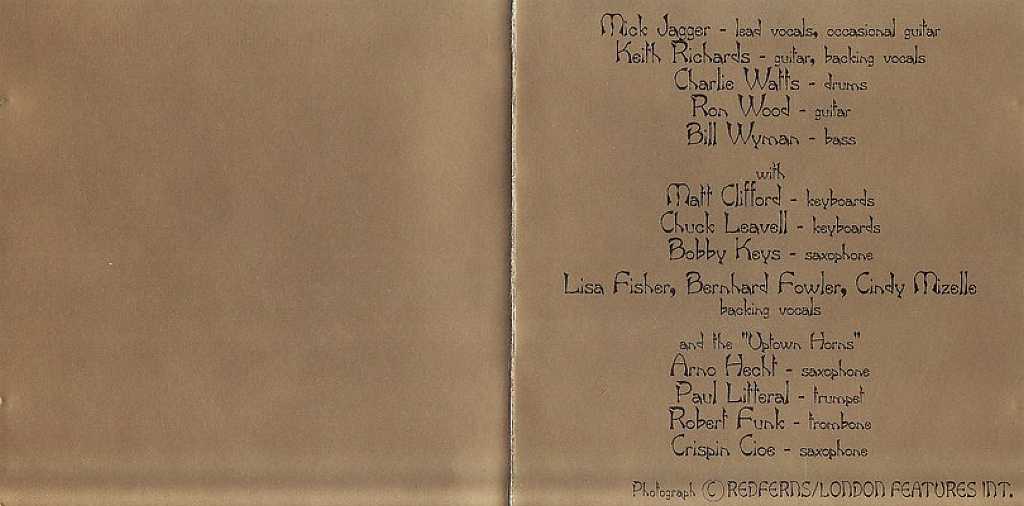 Mick Jagger - lead vocals, occasional guitar
Keith Richards - guitar, backing vocals
Charlie Watts - drums
Ron Wood - guitar
Bill Wyman - bass
with
Matt Clifford - keyboards
Chuck Leavell - keyboards
Bobby Keys - saxophone
Lisa Fisher, Bernhard Fowler, Cindy Mizelle
backing vocals
and the "Uptown Horns"
Arno Hecht - saxophone
Paul Litteral - trumpet
Robert Funk - trombone
Crispin Cioe - saxophone
Photograph © REDFERNS/LONDON FEATURES INT.